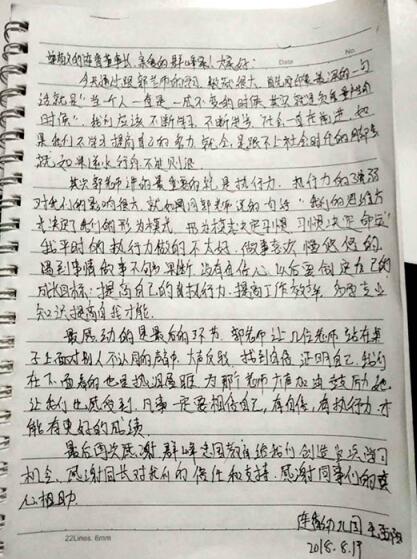 尊敬的连睿董事长、亲爱的群峰家人大家好:
Date
No.
今天通过跟郭老师的学习,触动很大,首先印象最深的一句
话就是“当一个人一直是一成不变的时候,其实就是负重前行的
时候”,我们应该不断学习,不断进步,社会一直在前进,如
果我们不学习提高自己的能力就会是跟不上社会时代的
就如果逆水行舟不进则退。
其次郭老师讲的最重要的就是执行力。执行力的强弱
对我们的影响很大,就如同郭老师说的内话“我们的思维方
式决定我们的行为模式,行为模式决定习惯,习惯决定命运”
我平时的执行力做的不太好,做事喜欢慢悠悠的。
遇到事情做事不够果断,没有自信心,以后要制定自己的
成长目标:提高自己的执行力,提高工作效率,多学专业
知识提高自我能力。
最感动的是最后的环节,郭老师让几位老师站在桌
子上面对别人不认同的声音,大声反驳,找到自信,证明自己,我们
在下面看的也是热泪盈眶,为那个老师大声加油鼓励她,
让我们也感受到,凡事一定要相信自己,有自信,有执行力才
能有更好的成绩。
最后再次感谢群峰志国教育给我们创造学习
机会、感谢园长对我们的信任和支持,感谢同事们的
心相助。
幼儿园
22Lines. 6mm
2018.8.19